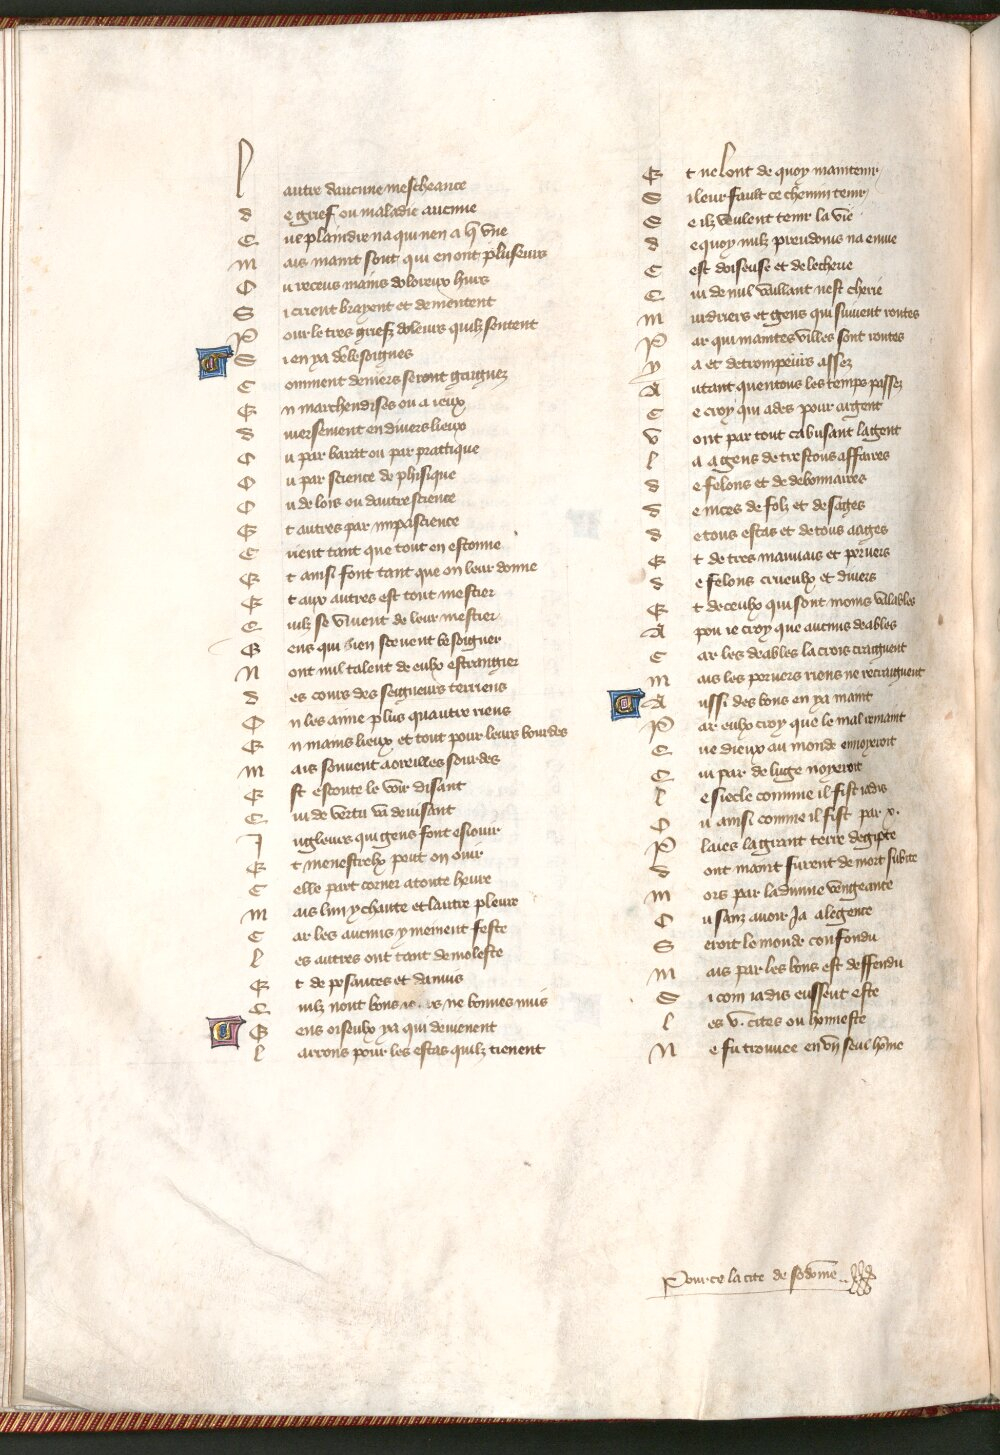 L autre daucune mescheance
d e grief ou maladie aucune
C ue plaindre na qui nen a q̃ vne
M ais maint sont qui en ont pluseurs
O u receus mains doloreux hurs
S i crient brayent et dementent
P our le tres griefz doleurs quilz sentent
S i en ya de besoignes
C omment deniers seront gaignez
E n marchendises ou a ieux
d iuersement en diuers lieux
O u par barat ou par prattique
O u par science de phisique
O u de lois ou dautre science
E t autres par impascience
C uient tant que tout en estonne
E t ainsi font tant que on leur donne
E t aux autres est tout mestier
C uilz se viuent de leur mestier
G ens qui bien sceuent besoigner
N ont nul talent de eulx estrangier
d es cours des seigneurs terriens
O n les aime plus quautre riens
E n mains lieux et tout pour leurs bourdes
M ais souuent a oreilles sourdes
E st escoute le voir disant
C ui de vertu va deuisant
J ugleurs qui gens font esiouir
E t menestrelx peut on ouir
C elle part corner a toute heure
M ais lun y chante et lautre pleure
C ar les aucuns y mement feste
l es autres ont tant de moleste
E t de pesances et danuis
C uilz nont bons ne bonnes nuis
G ens oiseulx ya qui deuienent
l arrons pour les estas quilz tienent
E t ne lont de quoy maintenir
S i leur fault ce chemin tenir
S e ilz veulent tenir la vie
d e quoy nulz preudoms na enuie
C est doiseuse et de lecherie
C ui de nul vaillant nest cherie
M urdriers et gens qui suiuent routes
P ar qui maintes villes sont routes
y a et de trompeurs assez
A utant quen tous les temps passez
C e croy qui ades pour argent
v ont par tout cabusant lagent
l a a gens de trestous affaires
d e felons et de debonnaires
d e nices de folz et de sages
d e tous estas et de tous aages
E t de tres mauuais et peruers
d e felons crueulx et diuers
E t de ceulx qui sont moins valables
A pou ie croy que aucuns deables
C ar les deables la crois craignent
M ais les peruers riens ne recraignent
A ussi des bons en ya maint
P ar eulx croy que le mal remaint
C ue dieux au monde enuoyeroit
C ui par deluge noyeroit
l e siecle comme il fist iadis
O u ainsi comme il fist par x.
P laies la grant terre degipte
d ont maint furent de mort subite
M ors par la diuine vengeance
O u sanz auoir Ja alegence
S eroit le monde confondu
M ais par les bons est deffendu
S i com iadis eussent este
l es v. cites ou honneste
N e fu trouuee en vn̄ seul hōme
Pour ce la cite de sodome